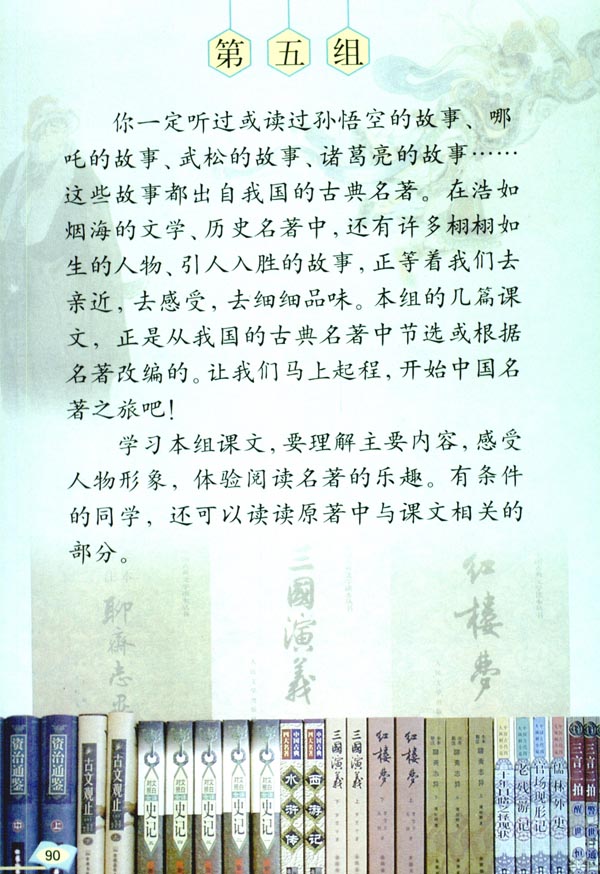 第五组
你一定听过或读过孙悟空的故事、哪
吒的故事、武松的故事、诸葛亮的故事……
这些故事都出自我国的古典名著。在浩如
烟海的文学、历史名著中，还有许多栩栩如
生的人物、引人入胜的故事，正等着我们去
亲近，去感受，去细细品味。本组的几篇课
文，正是从我国的古典名著中节选或根据
名著改编的。让我们马上起程，开始中国名
著之旅吧！
学习本组课文，要理解主要内容，感受
人物形象，体验阅读名著的乐趣。有条件
的同学，还可以读读原著中与课文相关的
部分。
聊斋志异
三國演義
红楼夢
资治通鉴 中
资治通鉴 上
古文观止 下
古文观止 上
史记
史记
史记
史记
史记
中国古典四大名著 水浒传
中国古典四大名著 西游记
三國演義 下
三國演義 上
红楼夢 下
红楼夢 上
二十年目睹之怪现状
老残游记
官场现形记
儒林外史
三言二拍
三言二拍
90